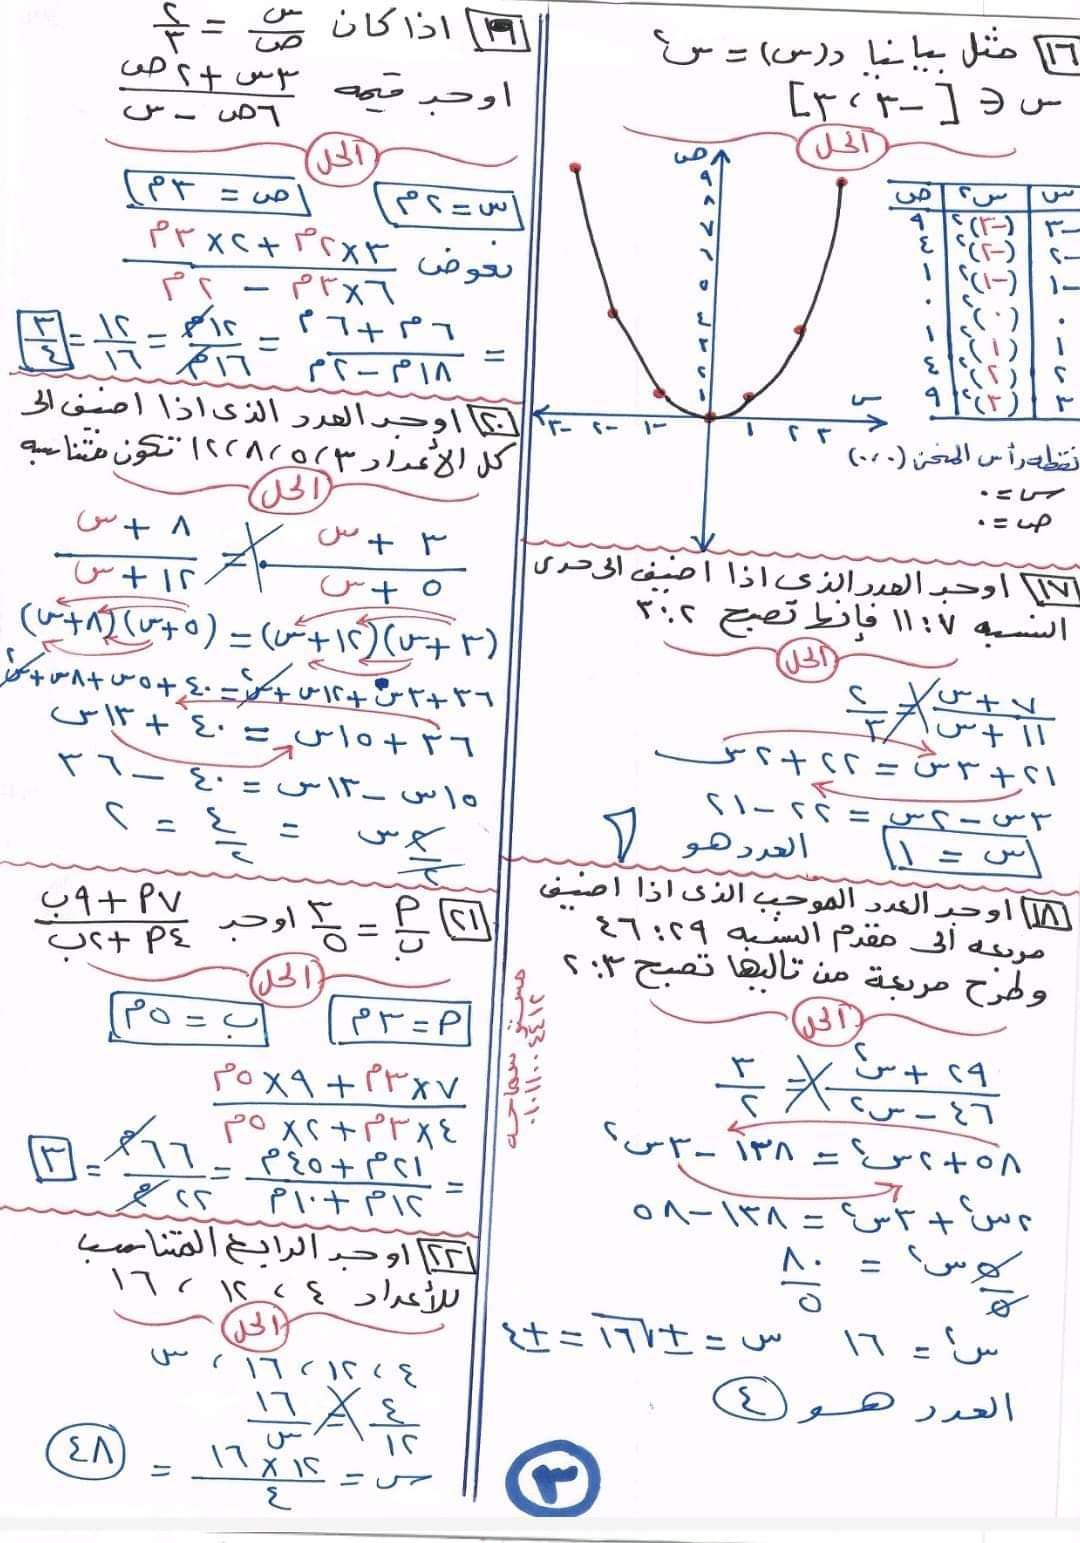 ١٦ مثل بيانيا د(س) = س²
س ∈ [-٣ ، ٣]
الحل
س | س² | ص
-٣ | (-٣)² | ٩
-٢ | (-٢)² | ٤
-١ | (-١)² | ١
٠ | (٠)² | ٠
١ | (١)² | ١
٢ | (٢)² | ٤
٣ | (٣)² | ٩
ص
٩
٨
٧
٦
٥
٤
٣
٢
١
-٣ -٢ -١ ١ ٢ ٣ س
نقطة رأس المنحنى (٠،٠)
س = ٠
ص = ٠
١٧ اوجد العدد الذى اذا اضيف الى حدى
النسبه ٧ : ١١ فإنها تصبح ٢ : ٣
الحل
(٧ + س)/(١١ + س) = ٢/٣
٢١ + ٣س = ٢٢ + ٢س
٣س - ٢س = ٢٢ - ٢١
س = ١ العدد هو ١
١٨ اوجد العدد الموجب الذى اذا اضيف
مربعه الى مقدم النسبه ٢٩ : ٤٦
وطرح مربعة من تاليها تصبح ٣ : ٢
الحل
(٢٩ + س²)/(٤٦ - س²) = ٣/٢
٥٨ + ٢س² = ١٣٨ - ٣س²
٢س² + ٣س² = ١٣٨ - ٥٨
٥س²/٥ = ٨٠/٥
س² = ١٦ س = ±√١٦ = ±٤
العدد هو ٤
١٩ اذا كان س/ص = ٢/٣
اوجد قيمه (٣س + ٢ص)/(٦ص - س)
الحل
س = ٢م ص = ٣م
نعوض (٣×٢م + ٢×٣م)/(٦×٣م - ٢م)
= (٦م + ٦م)/(١٨م - ٢م) = ١٢م/١٦م = ١٢/١٦ = ٣/٤
٢٠ اوجد العدد الذى اذا اضيف الى
كل الأعداد ٣ ، ٥ ، ٨ ، ١٢ تكون متناسبه
الحل
(٣ + س)/(٥ + س) = (٨ + س)/(١٢ + س)
(٣ + س)(١٢ + س) = (٥ + س)(٨ + س)
٣٦ + ٣س + ١٢س + س² = ٤٠ + ٥س + ٨س + س²
٣٦ + ١٥س = ٤٠ + ١٣س
١٥س - ١٣س = ٤٠ - ٣٦
٢س/٢ = ٤/٢ = ٢
٢١ م/ب = ٣/٥ اوجد (٧م + ٩ب)/(٤م + ٢ب)
الحل
م = ٣م ب = ٥م
(٧×٣م + ٩×٥م)/(٤×٣م + ٢×٥م)
= (٢١م + ٤٥م)/(١٢م + ١٠م) = ٦٦م/٢٢م = ٣
٢٢ اوجد الرابع المتناسب
للأعداد ٤ ، ١٢ ، ١٦
الحل
٤ ، ١٢ ، ١٦ ، س
٤/١٢ = ١٦/س
س = (١٢ × ١٦)/٤ = ٤٨
٣